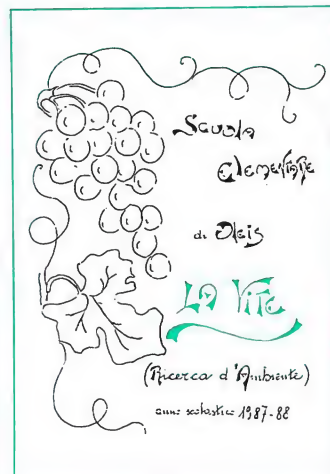 Scuola
Elementare
di Oleis
LA VITE
(Ricerca d'Ambiente)
anno scolastico 1987-88